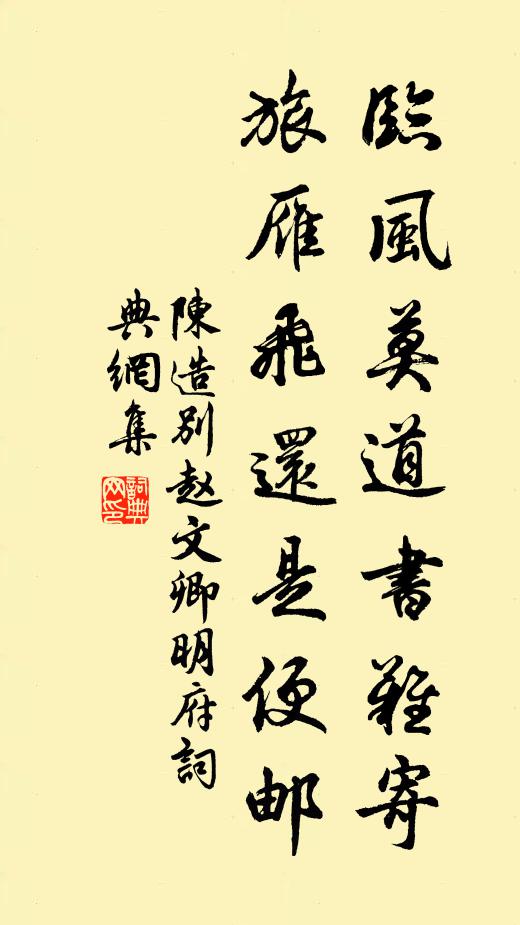 臨風莫道書難寄
旅雁飛還是便邮
陳造別赵文卿明府詞
典網集
詞典网印